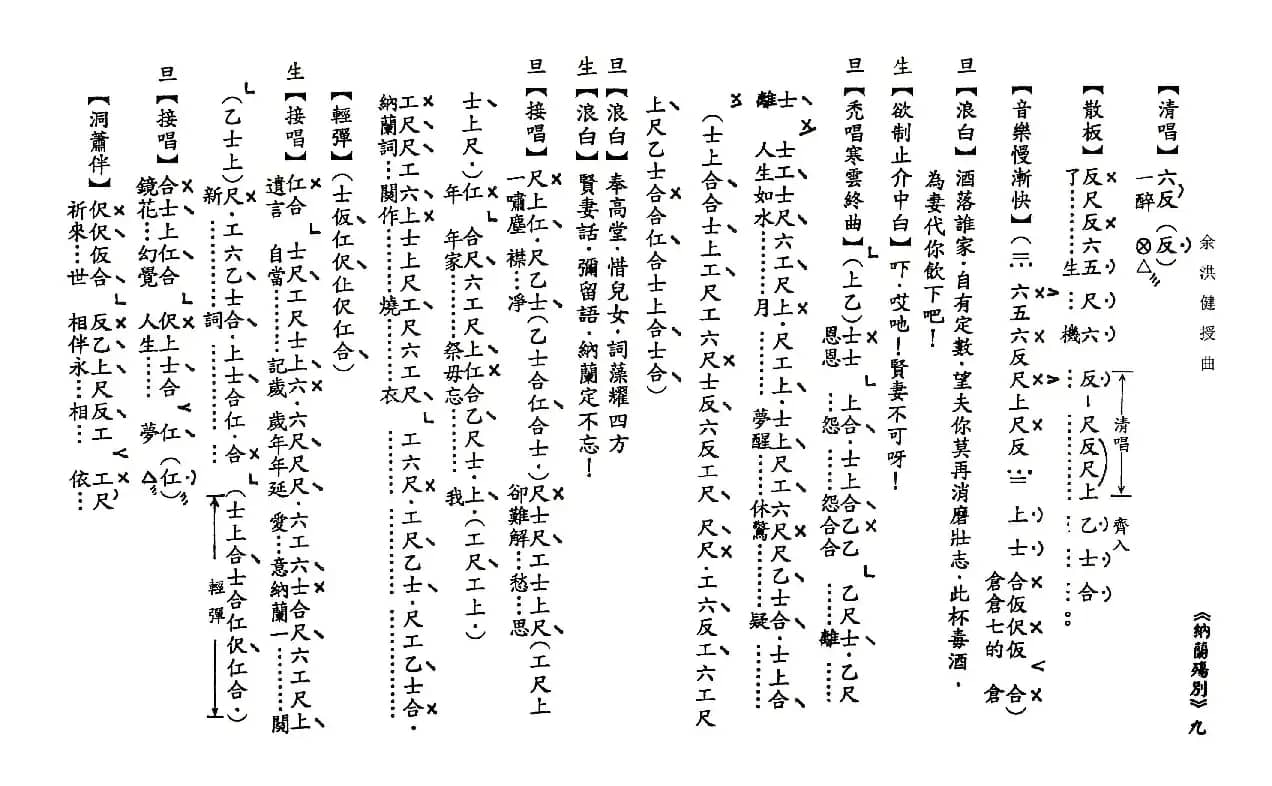 余洪健授曲
《納蘭殤別》九
【清唱】六反（反）
一醉
清唱 齊入
【散板】反尺反六五尺六 反－尺反尺上乙士合
了……生…機………………。
【音樂慢漸快】（三 六五六反尺上尺反 三 上士合仮伬仮 合）
倉倉七的 倉
旦【浪白】酒落誰家．自有定數．望夫你莫再消磨壯志．此杯毒酒．
為妻代你飲下吧！
生【欲制止介中白】吓．哎吔！賢妻不可呀！
旦【禿唱寒雲終曲】（上乙）士士 上合．士上合乙乙 乙尺士．乙尺
恩恩…怨…怨合合…離………
士 士工士尺六工尺上．尺工上．士上尺工六尺尺乙士合．士上合
離 人生如水……月……夢醒……休驚……疑………
（士上合合士上工尺工六尺士反六反工尺 尺尺．工六反工六工尺
上尺乙士合合仜合士上合士合）
旦【浪白】奉高堂．惜兒女．詞藻耀四方
生【浪白】賢妻話．彌留語．納蘭定不忘！
旦【接唱】尺上仜．尺乙士（乙士合仜合士．）尺士尺工士上尺（工尺上
一嘯塵 襟…凈 卻難解…愁…思
士上尺．）仜 合尺六工尺上仜合乙尺士．上．（工尺工上．）
年 年家………祭毋忘……我
工尺尺工六上士上尺工尺六工尺 工六尺．工尺乙士．尺工乙士合．
納蘭詞…閱作………燒……衣………………
【輕彈】（士仮仜伬仩伬仜合）
生【接唱】仜合 士尺工尺士上六．六尺尺尺．六工六士合尺六工尺上
遺言 自當………記歲 歲年年延 愛…意納蘭一……閱
（乙士上）尺．工六乙士合．上士合仜．合（士上合士合仜伬仜合．）
新…………詞…………
輕彈
旦【接唱】合士上仜合 伬上士合 仜（仜）
鏡花…幻覺 人生…… 夢
【洞簫伴】伬伬仮合 反乙上尺反工 工尺
祈來…世 相伴永…相… 依…